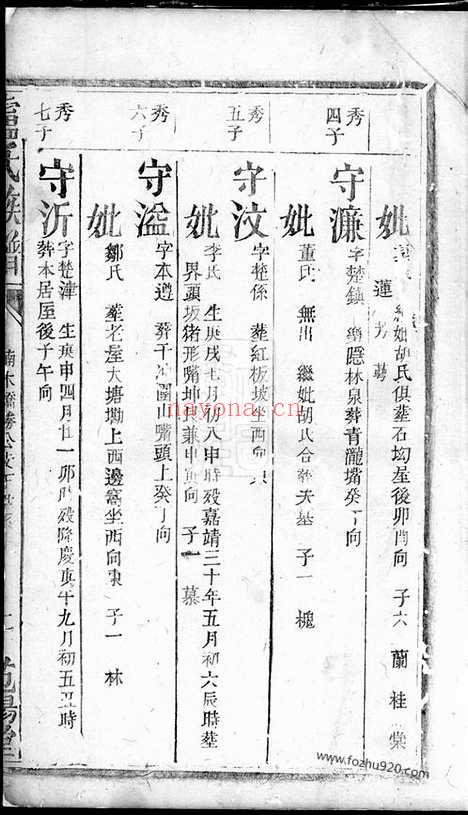 妣
蓮 芳 繼妣胡氏俱塟石均屋後卯酉向 子六 蘭 桂 棠
秀
四子
守濂
字楚鎮 塟隱林泉葬青瀧嘴癸丁向
妣
董氏 無出 繼妣胡氏合葬夫墓 子一 槐
秀
五子
守汶
字楚係 塟紅板坡坐西向
妣
李氏 生庚戌七月初八申時殁嘉靖三十年五月初六辰時塟
界頭坂猪形嘴坤艮兼申寅向 子一 慕
秀
六子
守溢
字本遵 葬干冲園山嘴頭上癸丁向
妣
鄒氏 塟老屋大塘墈上西邊窩坐西向東 子一 林
秀
七子
守沂
字楚津 生庚申四月廿一卯時殁隆慶庚午九月初五丑時
葬本居屋後子午向
氏族譜
楠木橋
范陽堂
nayona.cn
www.fozhu920.com